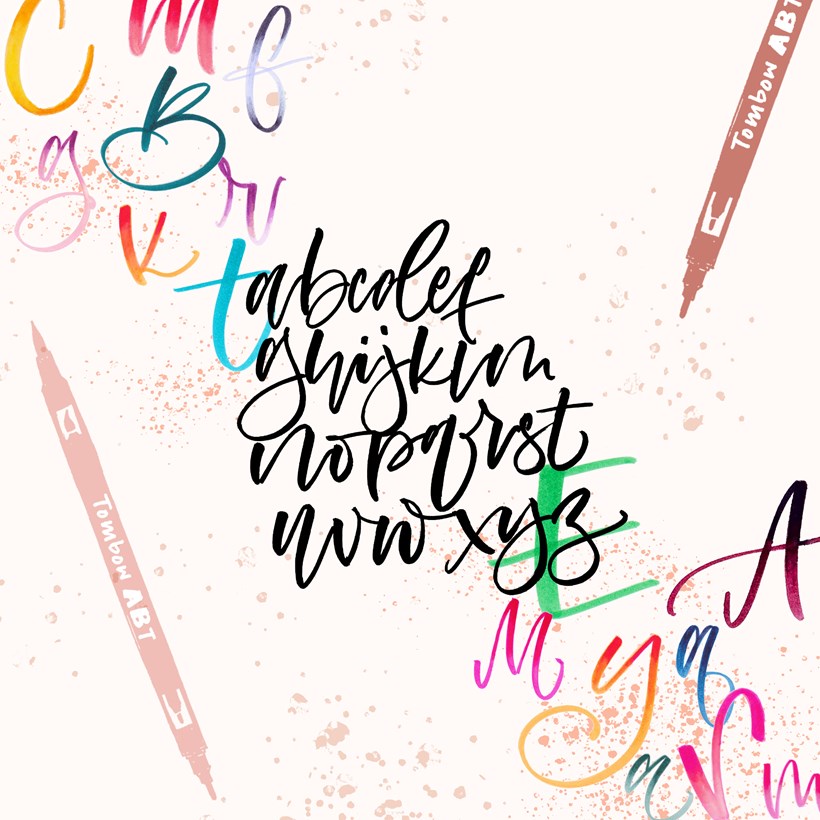 C m f
B
g r
k
t
Tombow ABT
abcdef
ghijklm
nopqrst
uvwxyz
Tombow ABT
E
A
M y q
a r m